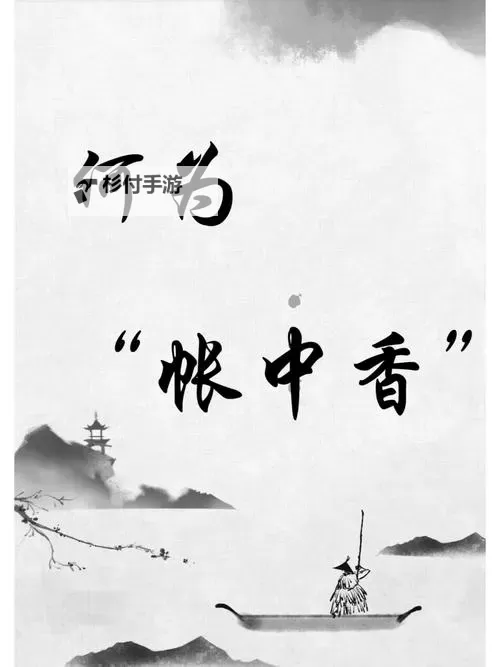 何为
杉付手游
“帐中香”